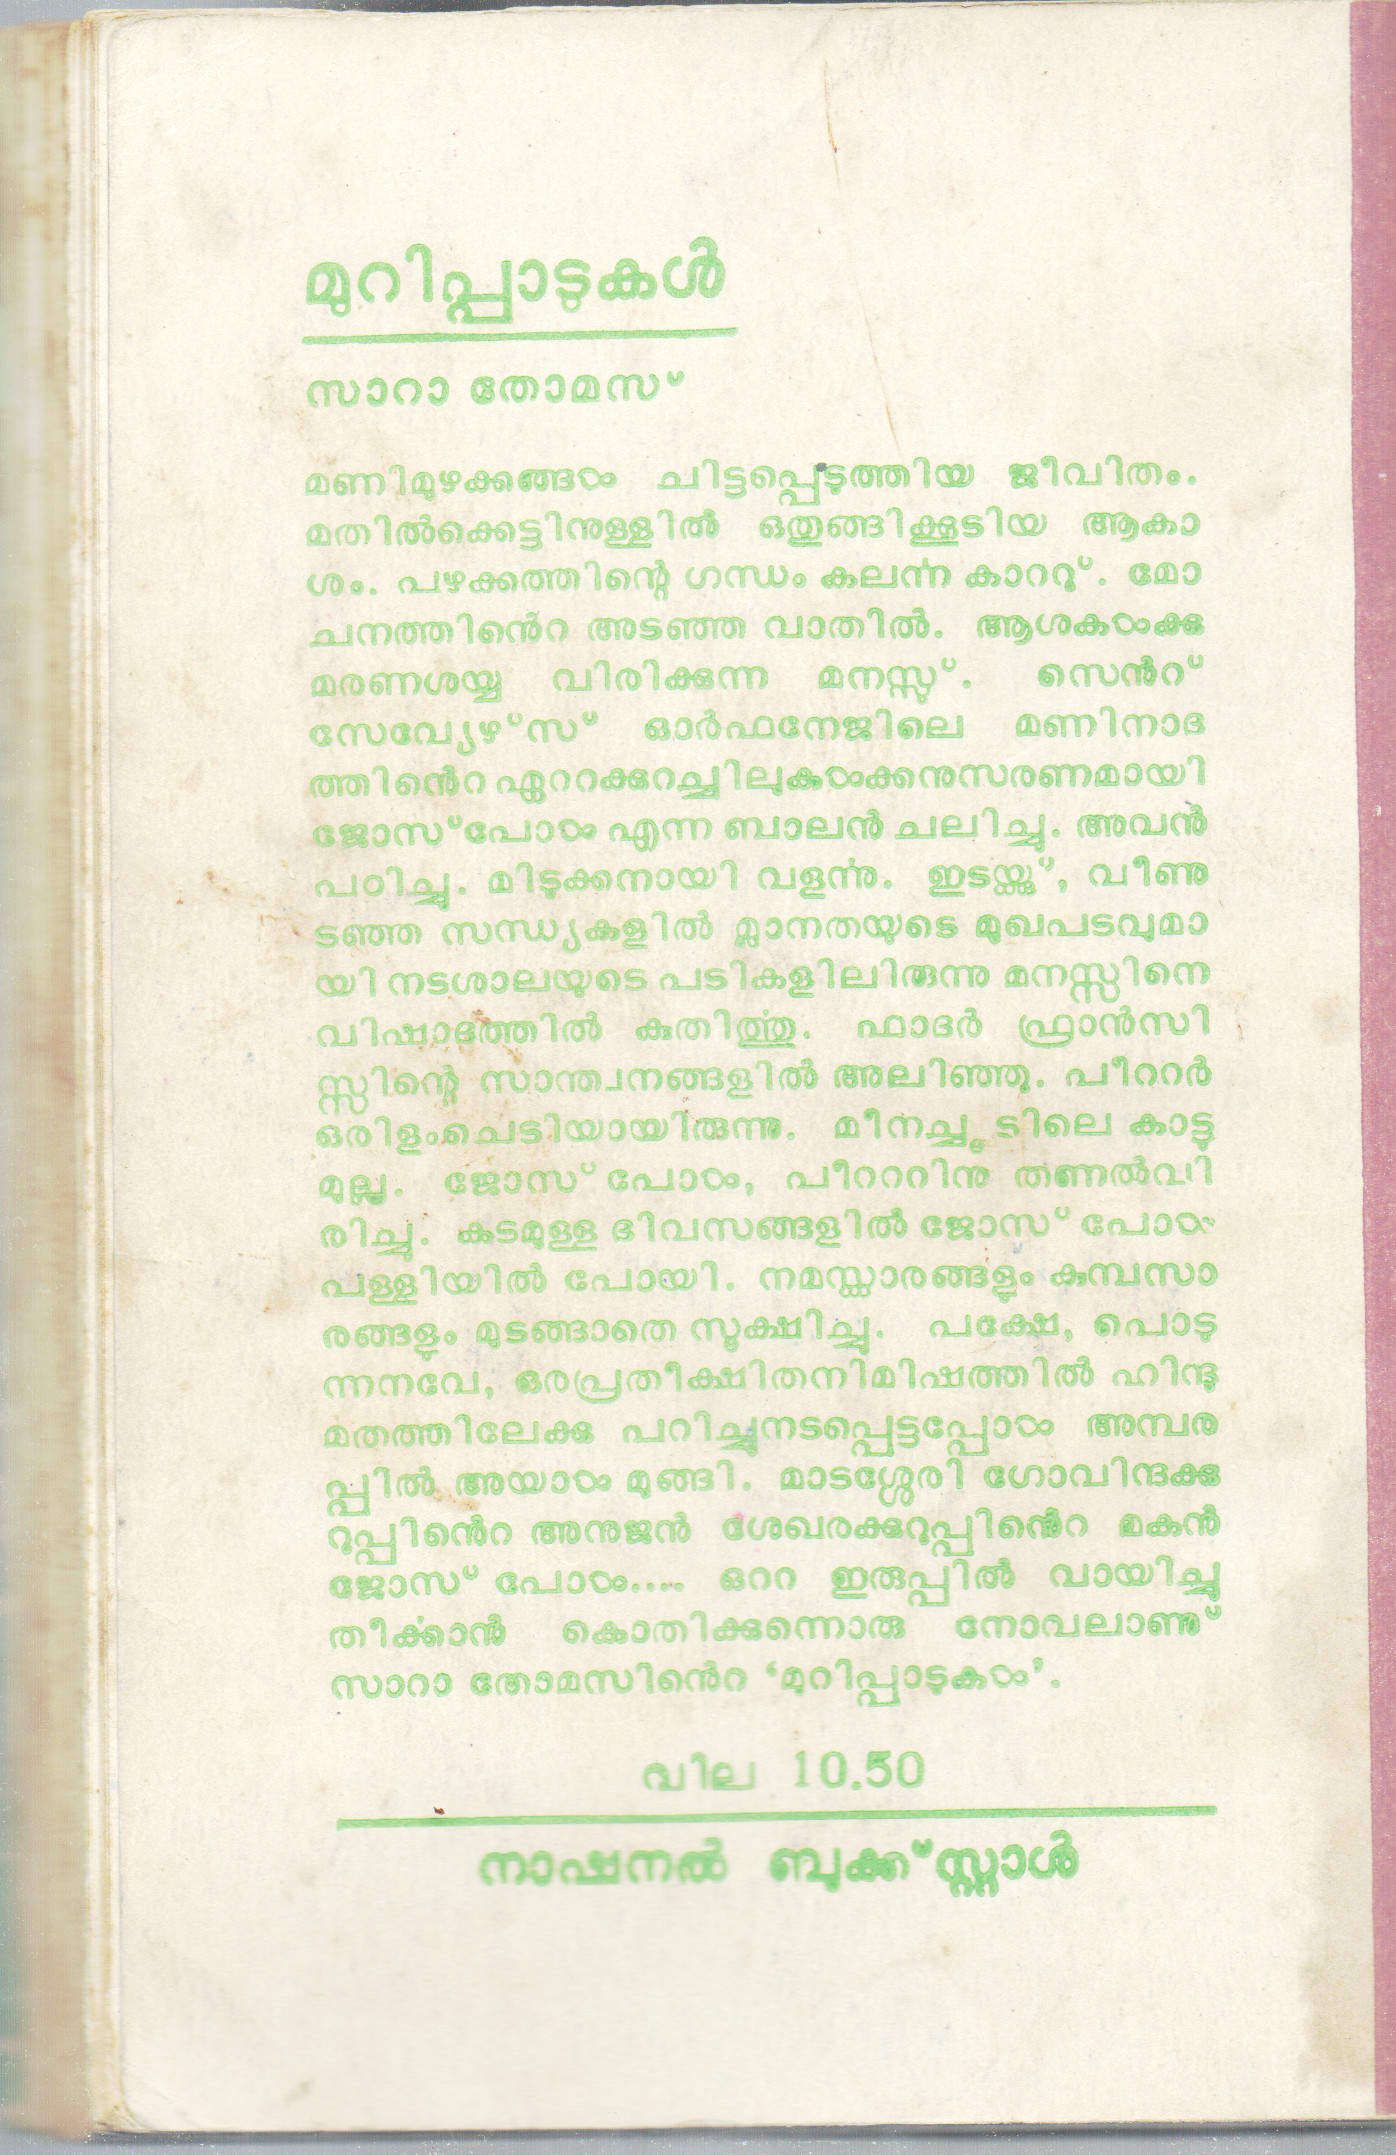 മുറിപ്പാടുകൾ
സാറാ തോമസ്
മണിമുഴക്കങ്ങൾ ചിട്ടപ്പെടുത്തിയ ജീവിതം.
മതിൽക്കെട്ടിനുള്ളിൽ ഒതുങ്ങിക്കൂടിയ ആകാ
ശം. പഴക്കത്തിന്റെ ഗന്ധം കലൎന്ന കാററു്. മോ
ചനത്തിൻെറ അടഞ്ഞ വാതിൽ. ആശകൾക്കു
മരണശയ്യ വിരിക്കുന്ന മനസ്സു്. സെൻറ്
സേവ്യേഴ്സ് ഓർഫനേജിലെ മണിനാദ
ത്തിൻെറ ഏററക്കുറച്ചിലുകൾക്കനുസരണമായി
ജോസ്പോൾ എന്ന ബാലൻ ചലിച്ചു. അവൻ
പഠിച്ചു. മിടുക്കനായി വളൎന്നു. ഇടയ്ക്കു്, വീണു
ടഞ്ഞ സന്ധ്യകളിൽ മ്ലാനതയുടെ മുഖപടവുമാ
യി നടശാലയുടെ പടികളിലിരുന്നു മനസ്സിനെ
വിഷാദത്തിൽ കുതിൎത്തു. ഫാദർ ഫ്രാൻസി
സ്സിന്റെ സാന്ത്വനങ്ങളിൽ അലിഞ്ഞു. പീററർ
ഒരിളംചെടിയായിരുന്നു. മീനച്ചൂടിലെ കാട്ടു
മുല്ല. ജോസ് പോൾ, പീറററിനു തണൽവി
രിച്ചു. കടമുള്ള ദിവസങ്ങളിൽ ജോസ് പോൾ
പള്ളിയിൽ പോയി. നമസ്ക്കാരങ്ങളും കുമ്പസാ
രങ്ങളും മുടങ്ങാതെ സൂക്ഷിച്ചു. പക്ഷേ, പൊടു
ന്നനവേ, ഒരപ്രതീക്ഷിതനിമിഷത്തിൽ ഹിന്ദു
മതത്തിലേക്കു പറിച്ചുനടപ്പെട്ടപ്പോൾ അമ്പര
പ്പിൽ അയാൾ മുങ്ങി. മാടശ്ശേരി ഗോവിന്ദക്കു
റുപ്പിൻെറ അനുജൻ ശേഖരക്കുറുപ്പിൻെറ മകൻ
ജോസ് പോൾ..... ഒററ ഇരുപ്പിൽ വായിച്ചു
തീൎക്കാൻ കൊതിക്കുന്നൊരു നോവലാണു്
സാറാ തോമസിൻെറ ‘മുറിപ്പാടുകൾ’.
വില 10.50
നാഷനൽ ബുക്ക്സ്റ്റാൾ